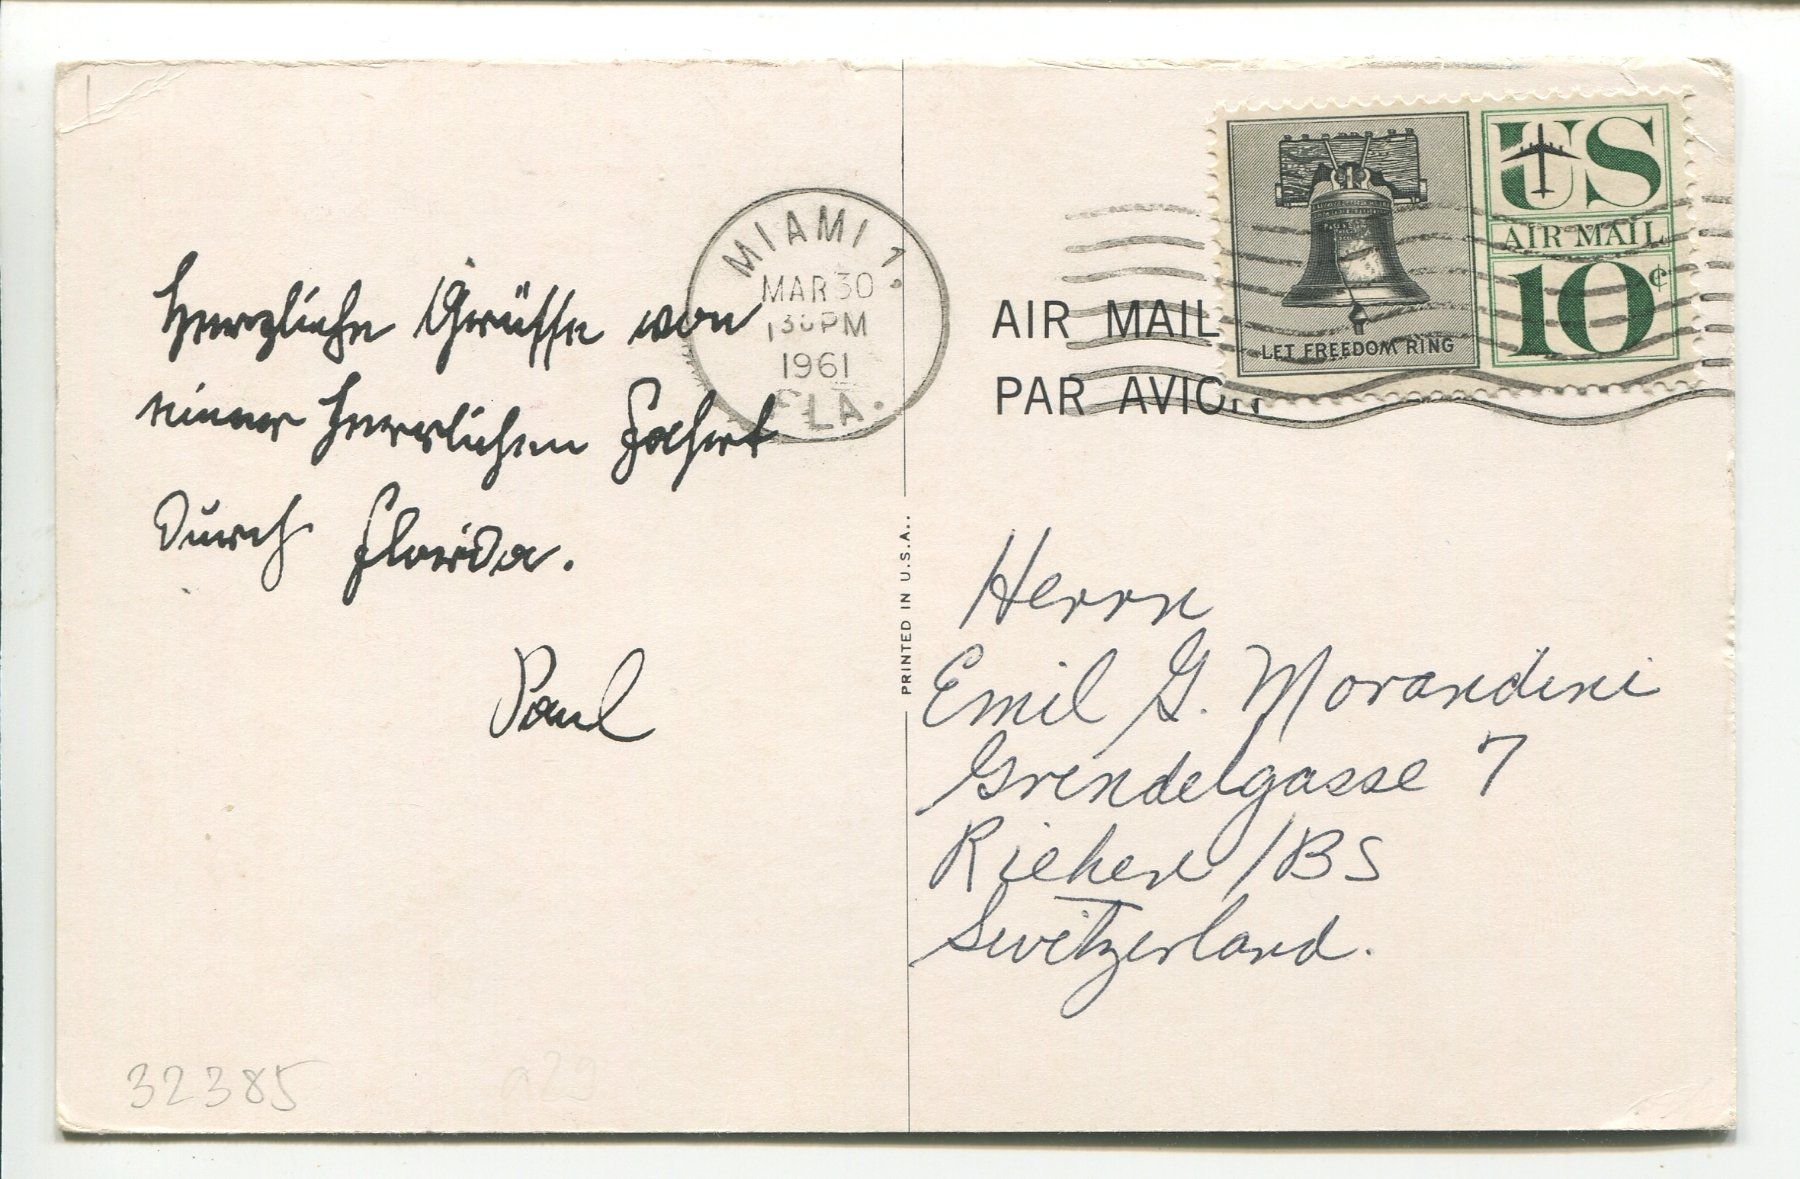 Herzliche Grüsse von
einer herrlichen Fahrt
durch Florida.
Paul
32385
MIAMI 1.
MAR 30
1 30 PM
1961
FLA.
AIR MAIL
PAR AVION
LET FREEDOM RING
US
AIR MAIL
10¢
PRINTED IN U.S.A.
Herrn
Emil G. Morandini
Grendelgasse 7
Riehen / BS
Switzerland.